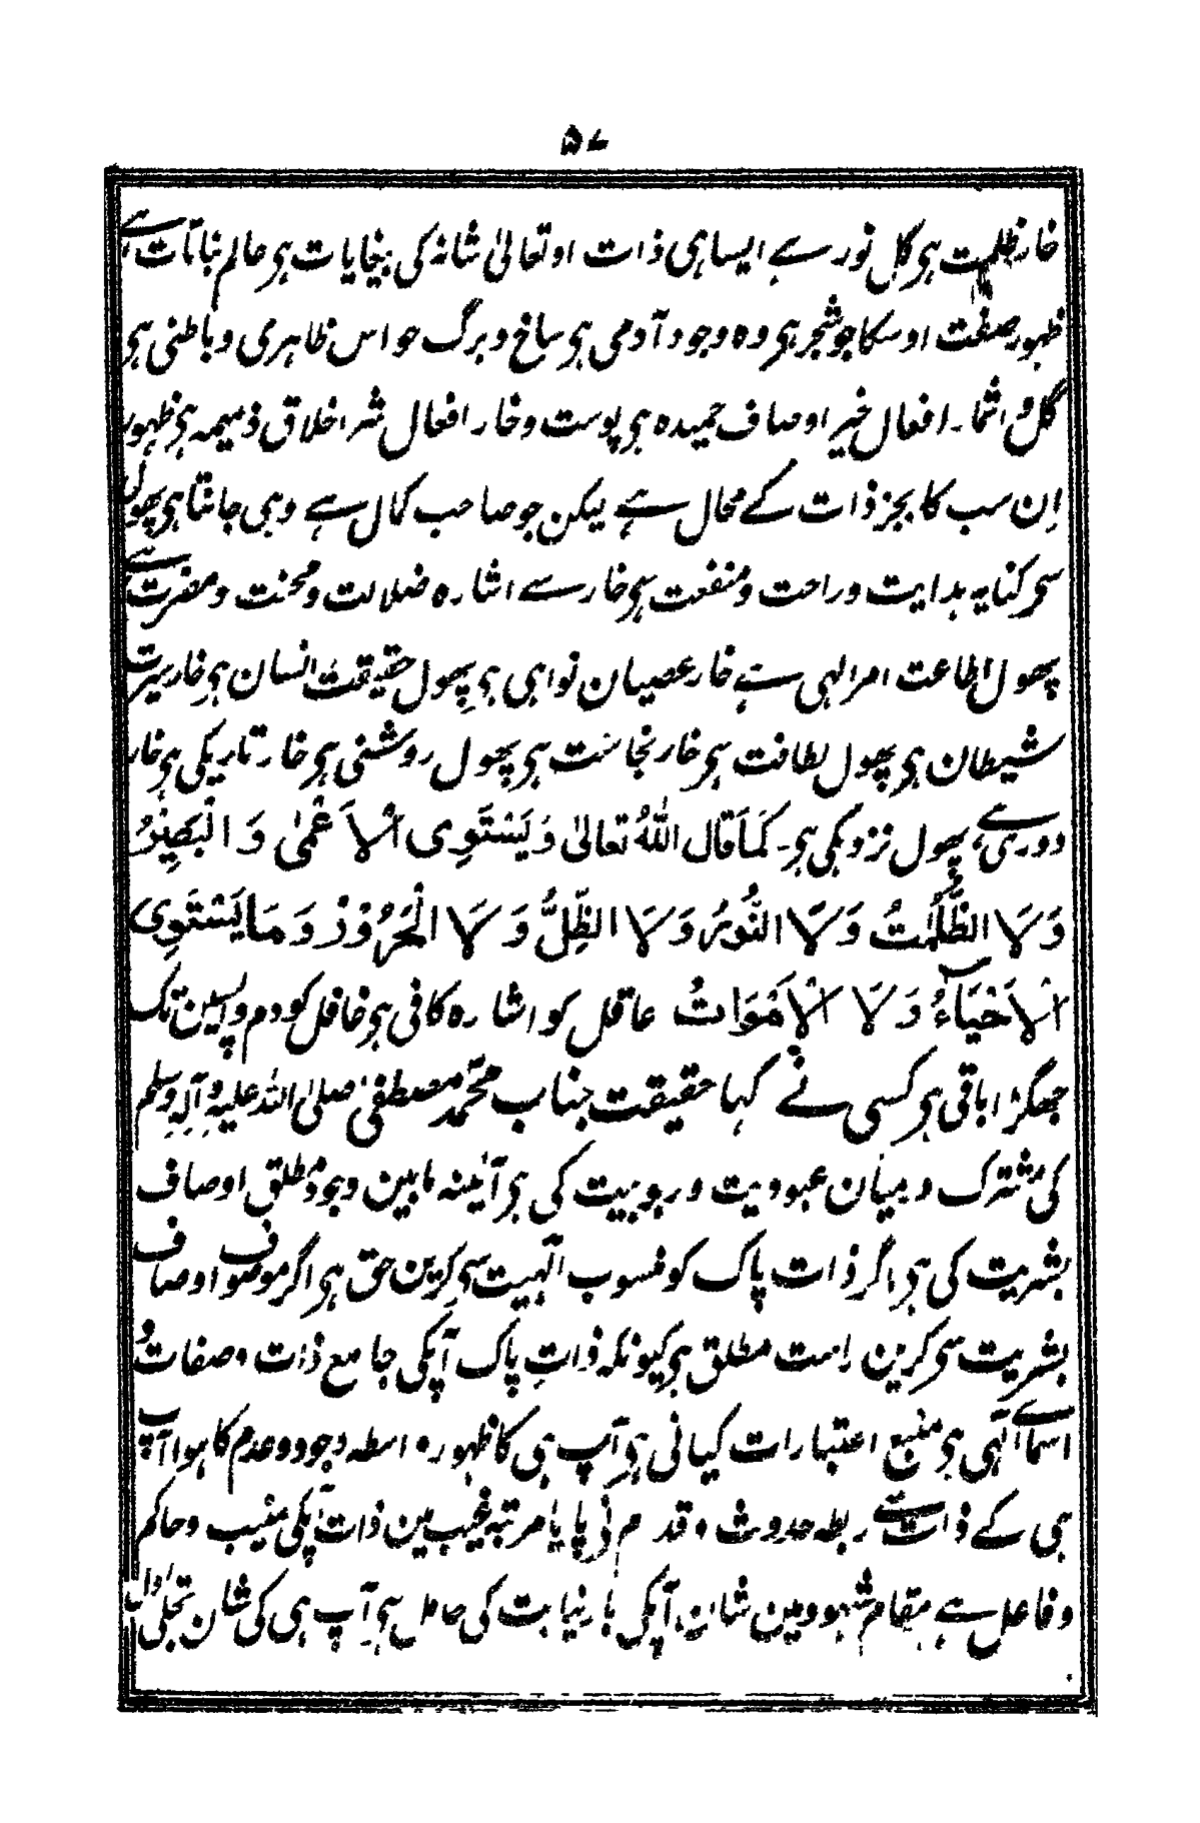 ۵۷
خار ظلمت ہی گل نور ہے ایسا ہی ذات او تعالیٰ شانہ کی بیغایات ہی عالم نباتات ہے
ظہور صفت اوسکا جو شجر ہی وہ وجود آدمی ہی شاخ و برگ حواس ظاہری و باطنی ہی
گل و اثمار افعال خیر اوصاف حمیدہ ہی پوست و خار افعال شر اخلاق ذمیمہ ہی ظہور
اِن سب کا بجز ذات کے محال ہے لیکن جو صاحب کمال ہے وہی جانتا ہی پھول
سی کنایہ ہدایت و راحت و منفعت ہی خار سے اشارہ ضلالت و محنت و مضرت ہے
پھول اطاعت امر الہی ہے خار عصیان نواہی ہی پھول حقیقت انسان ہی خار سیرت
شیطان ہی پھول لطافت ہی خار نجاست ہی پھول روشنی ہی خار تاریکی ہی خار
دوری ہے پھول نزدیکی ہی۔ کَمَا قَالَ اللّٰہُ تعالیٰ وَیَسْتَوِی الْاَعْمٰی وَ الْبَصِیْرُ
وَلَا الظُّلُمٰتُ وَلَا النُّوْرُ وَلَا الظِّلُّ وَلَا الْحَرُوْرُ وَمَا یَسْتَوِی
الْاَحْیَآءُ وَلَا الْاَمْوَاتُ عاقل کو اشارہ کافی ہی غافل کو دم واپسین تک
جھگڑا باقی ہی کسی نے کہا حقیقت جناب محمّد مصطفیٰ صلی اللہ علیہ وآلہ وسلم
کی مشترک درمیان عبودیت و ربوبیت کی ہی آئینہ مابین وجود مطلق اوصاف
بشریت کی ہی اگر ذات پاک کو منسوب الٰہیت سی کرین حق ہی اگر موصوف اوصاف
بشریت سی کرین راست مطلق ہی کیونکہ ذاتِ پاک آپکی جامع ذات و صفات و
اسمائے الٰہی ہی منبع اعتبارات کیانی ہی آپ ہی کا ظہور واسطہ وجود و عدم کا ہوا آپ
ہی کے ذات سے ربطہ حدوث و قدم نی پایا مرتبہ غیب مین ذات آپکی منیب و حاکم
و فاعل ہے مقام شہود مین شان آپکی بار نیابت کی حامل ہی آپ ہی کی شان تجلی